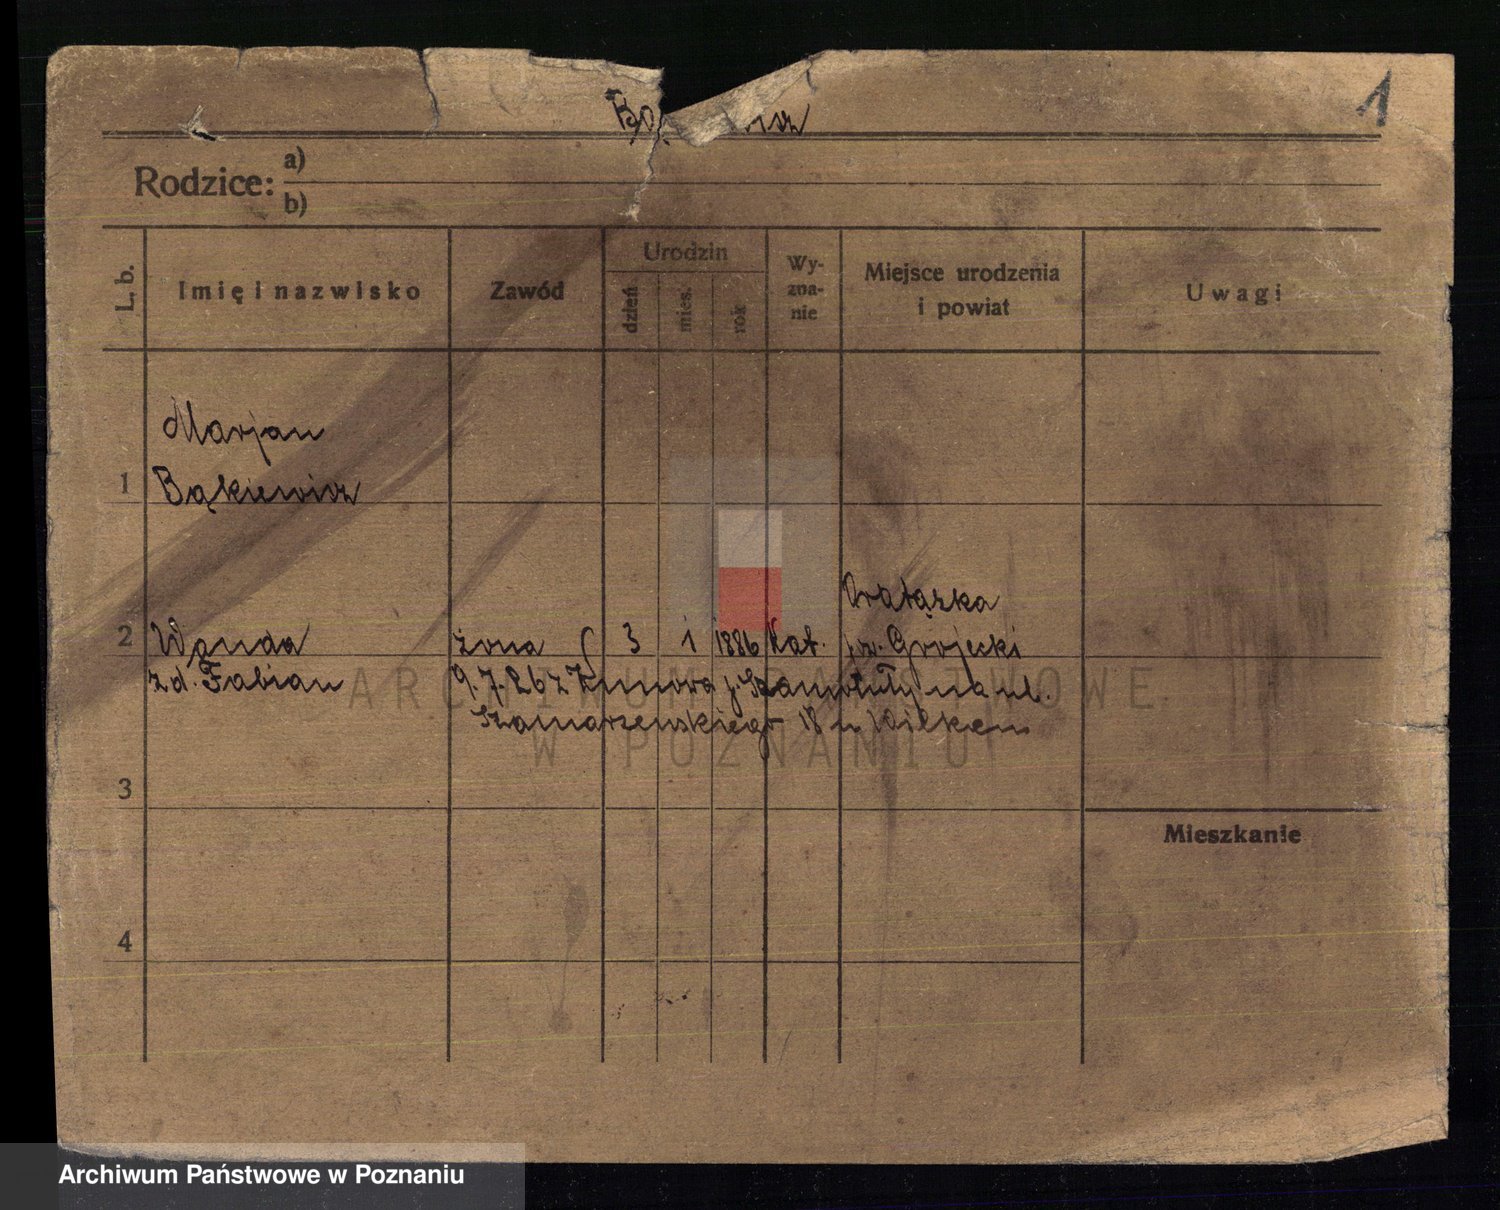 1
Rodzice: a)
b)
L. b.
Imię i nazwisko
Zawód
Urodzin
dzień
mies.
rok
Wy-
zna-
nie
Miejsce urodzenia
i powiat
Uwagi
Marjan
1 Bąkiewicz
2 Wanda żona 3 1 1886 Kat. pow. Grójecki
zd. Fabian 9.7.26 z p. Szamotuły na ul.
Szamarzewskiego 18 u Wilkem
3
Mieszkanie
4
ARCHIWUM PAŃSTWOWE
W POZNANIU
Archiwum Państwowe w Poznaniu